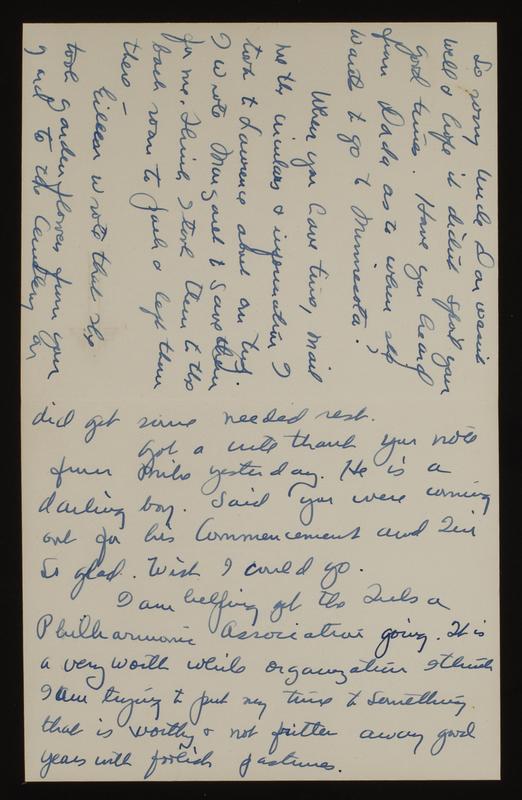 So sorry Uncle Dan wasnt
well & hope it didnt spoil your
good times. Have you heard
from Dada as to when she
wants to go to Minnesota?
When you have time, mail
me the circulars & information I
took to Lawrence about our trip.
I wrote Margaret to save them
for me. I think I took them to the
back room to Jack & left them
there —
Eileen wrote that she
took garden flowers from your
yard to the Cemetery on
did get some needed rest.
Got a cute thank you note
from Milo yesterday. He is a
darling boy. Said you were coming
out for his Commencement and I'm
so glad. Wish I could go.
I am helping get the Tulsa
Philharmonic Association going. It is
a very worth while organization I think
I am trying to put my time to something
that is worthy & not fritter away good
years with foolish pastimes.